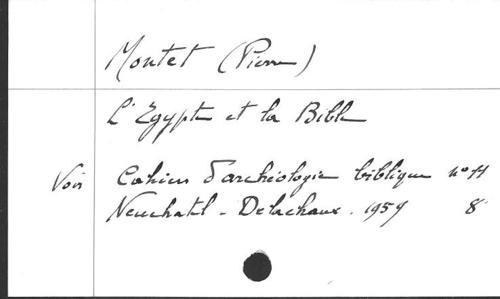 Montet (Pierre)
L'Egypte et la Bible
Voir Cahiers d'archéologie biblique n° 11
Neuchatel - Delachaux. 1959 8°